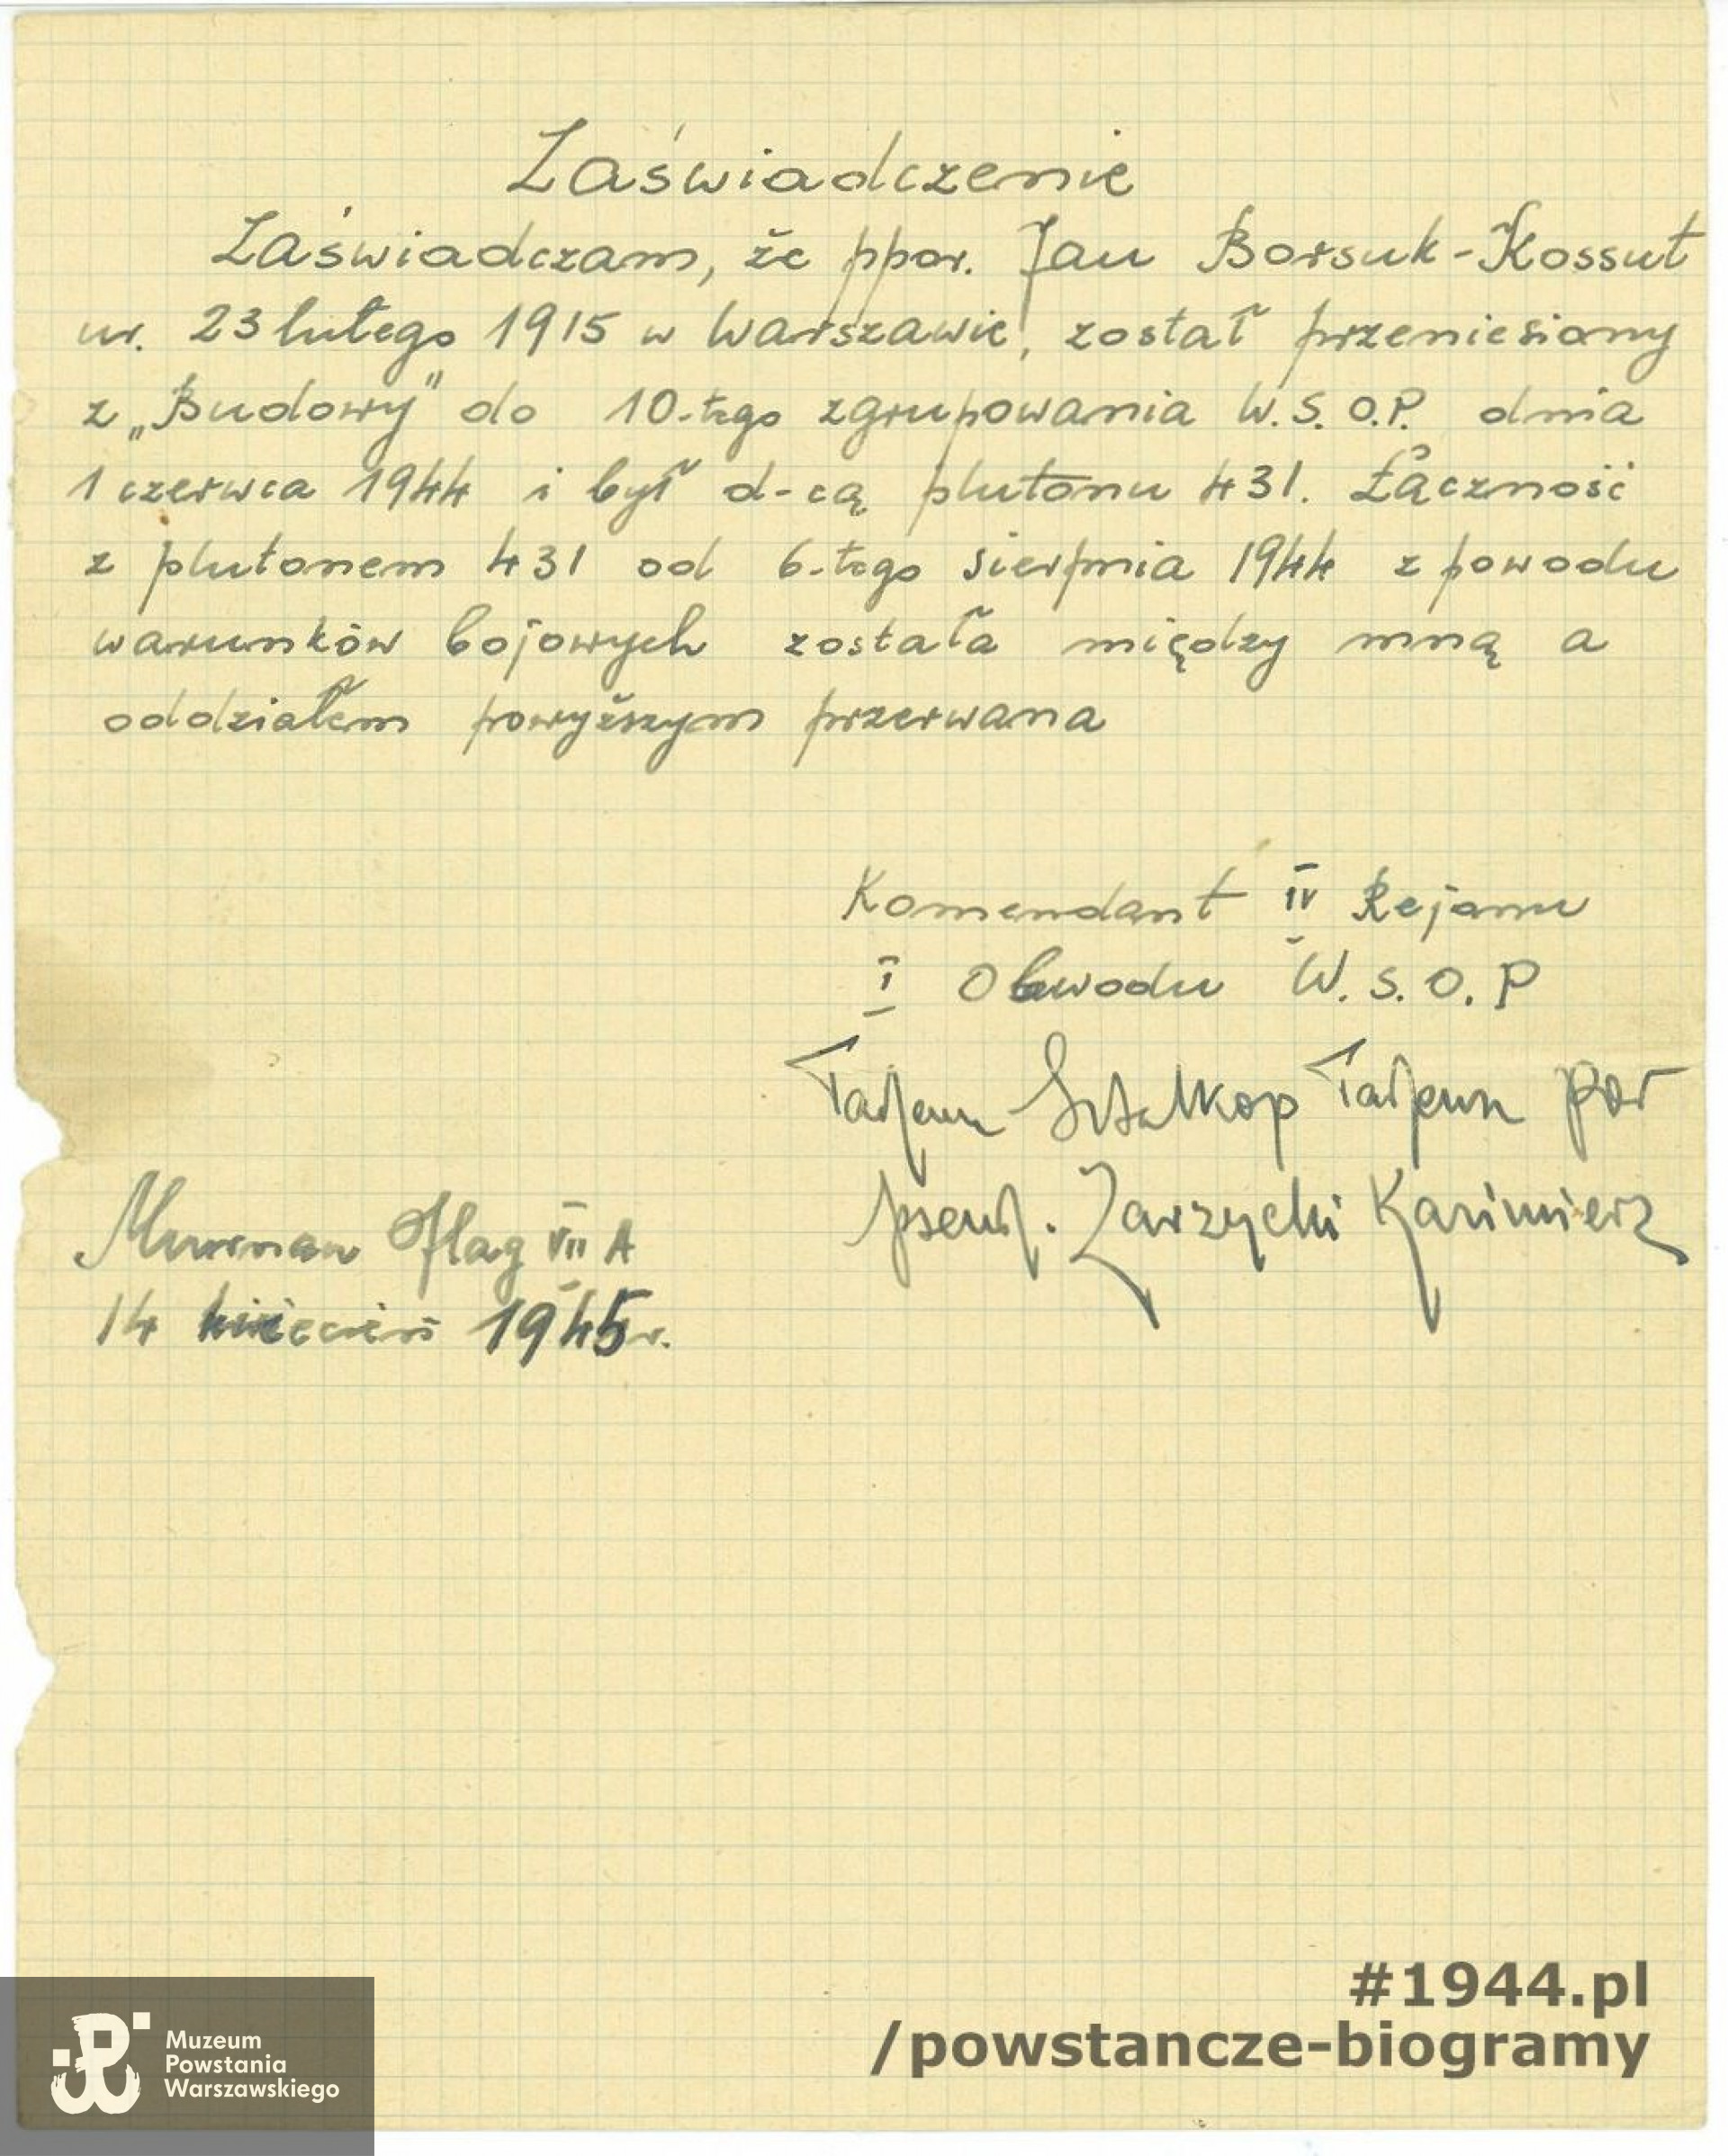 Zaświadczenie
Zaświadczam, że ppor. Jan Borsuk-Kossut
ur. 23 lutego 1915 w Warszawie, został przeniesiony
z „Budowy" do 10-tego zgrupowania W.S.O.P. dnia
1 czerwca 1944 i był d-cą plutonu 431. Łączność
z plutonem 431 od 6-tego sierpnia 1944 z powodu
warunków bojowych została między mną a
oddziałem powyższym przerwana
Komendant IV Rejonu
I Obwodu W.S.O.P
Tadeusz por
pseud. Zarzycki Kazimierz
Murnau Oflag VII A
14 kwiecień 1945 r.
#1944.pl
/powstancze-biogramy
Muzeum
Powstania
Warszawskiego